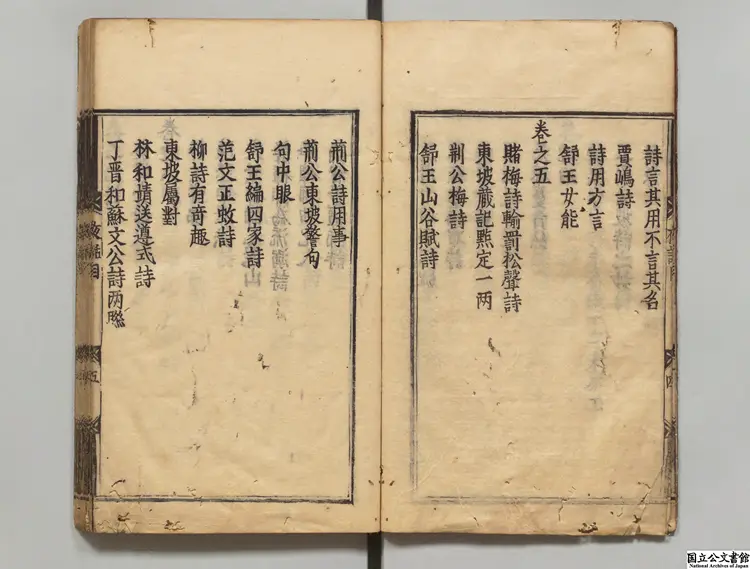 詩言其用不言其名
賈嶋詩
詩用方言
舒王女能
卷之五
賭梅詩輸罰松聲詩
東坡蔵記㸃定一两
荆公梅詩
舒王山谷賦詩
荊公詩用事
荊公東坡警句
句中眼
舒王編四家詩
范文正蚊詩
柳詩有竒趣
東坡屬對
林和靖送遵式詩
丁晋和蘇文公詩两聮
夜話目
五
国立公文書館
National Archives of Japan